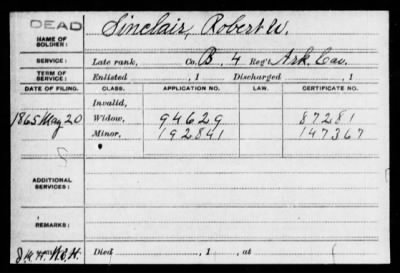 DEAD
NAME OF SOLDIER: Sinclair, Robert W.
SERVICE: Late rank, Co. B, 4 Reg't Ark. Cav.
TERM OF SERVICE: Enlisted , 1 Discharged , 1
DATE OF FILING. CLASS. APPLICATION NO. CERTIFICATE NO.
Invalid,
1865 May 20 Widow, 94629 87281
Minor, 192841 147367
ADDITIONAL SERVICES:
REMARKS:
Died , 1 , at